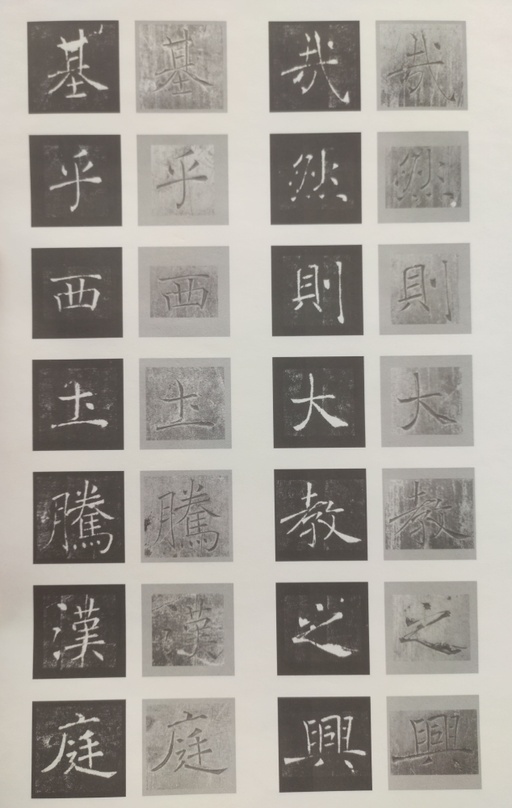 哉然則大教之興
哉然則大教之興
基乎西土騰漢庭
基乎西土騰漢庭